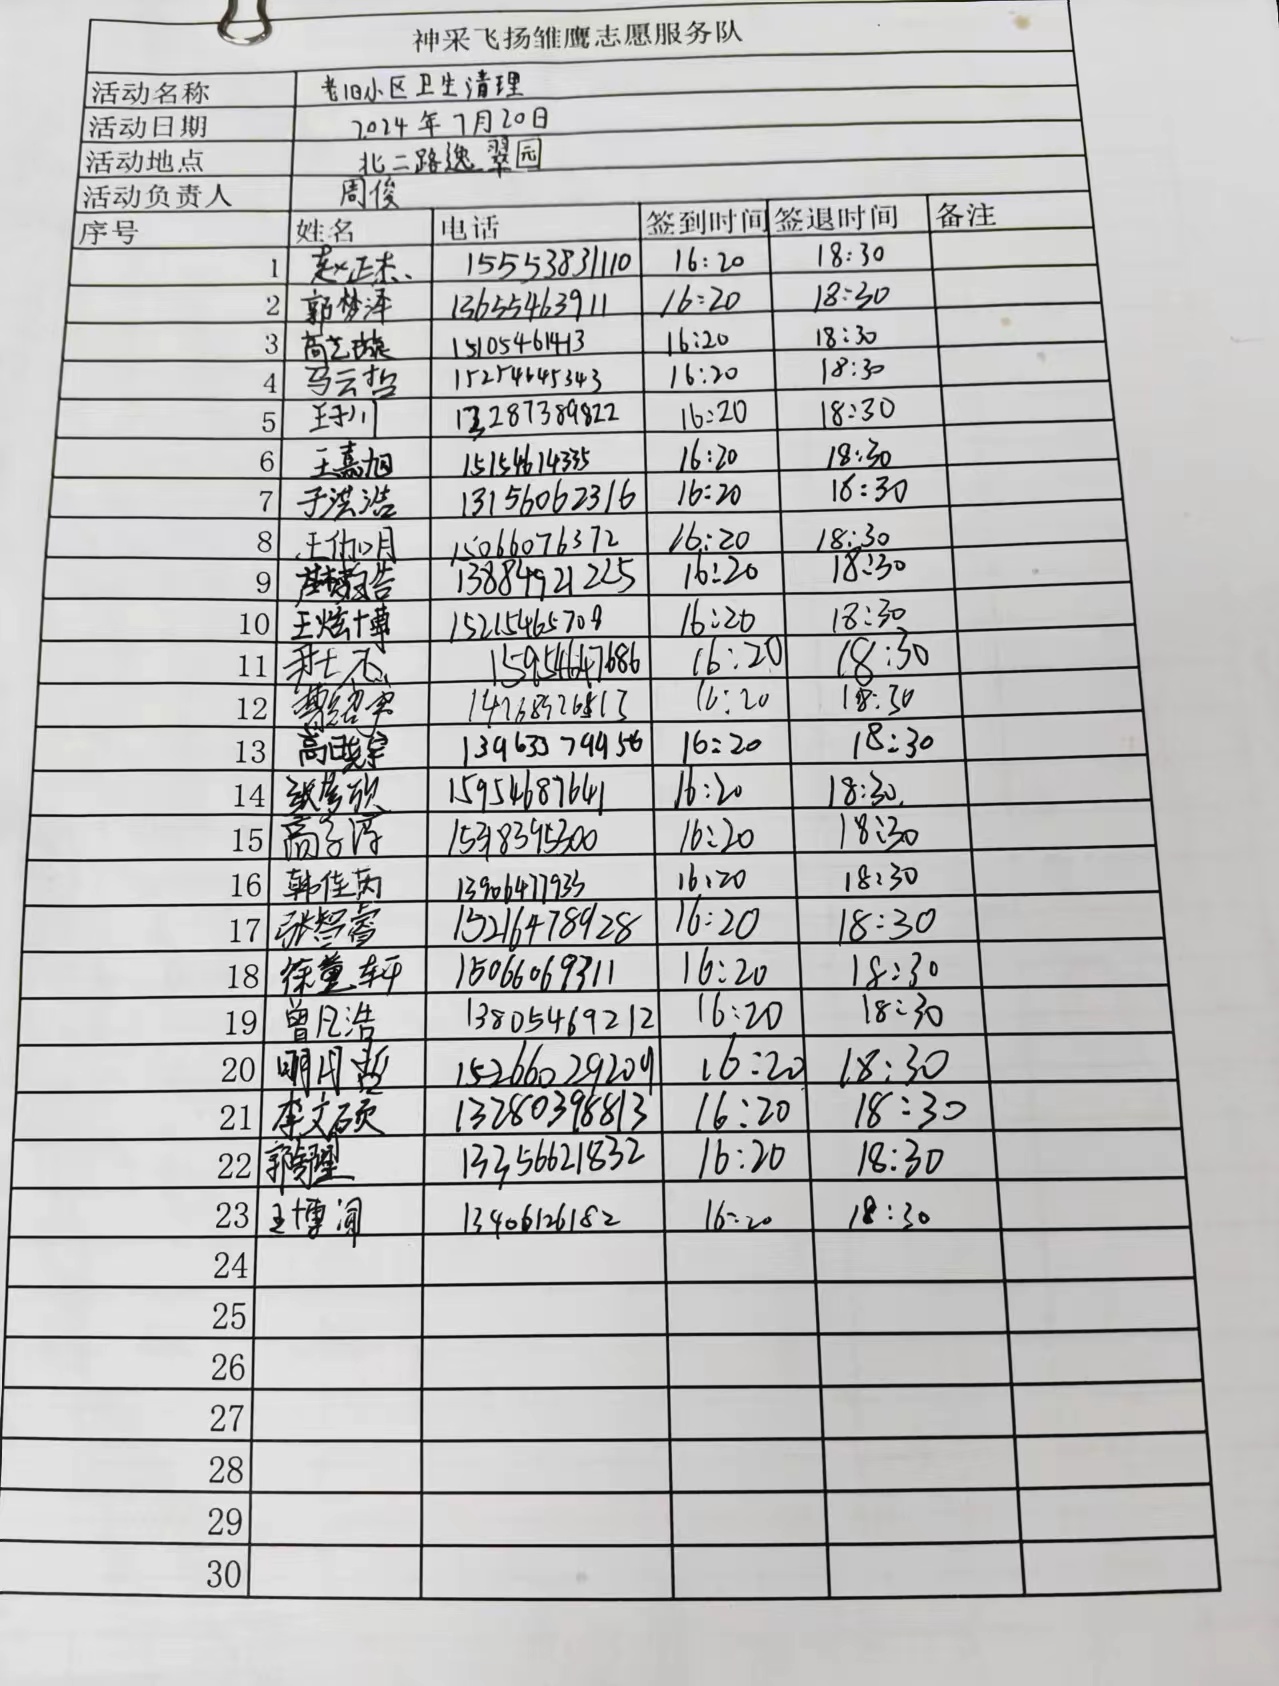 神采飞扬雏鹰志愿服务队
活动名称 老旧小区卫生清理
活动日期 2024年7月20日
活动地点 北二路逸翠园
活动负责人 周俊
序号 姓名 电话 签到时间 签退时间 备注
1 赵正杰 15553831110 16:20 18:30
2 郭梦泽 13655463911 16:20 18:30
3 15105461413 16:20 18:30
4 马云哲 15254645343 16:20 18:30
5 王子川 13287389822 16:20 18:30
6 王嘉旭 15154614335 16:20 18:30
7 于洪浩 13156062316 16:20 18:30
8 15066076372 16:20 18:30
9 13884921225 16:20 18:30
10 王炫博 15215465708 16:20 18:30
11 15954647686 16:20 18:30
12 16:20 18:30
13 16:20 18:30
14 15954687641 16:20 18:30
15 高子淳 15318395300 16:20 18:30
16 韩佳芮 13906477935 16:20 18:30
17 张智睿 15216478928 16:20 18:30
18 徐董轩 15066069311 16:20 18:30
19 曾凡浩 13805469212 16:20 18:30
20 明月哲 15266029209 16:20 18:30
21 李文硕 13280398813 16:20 18:30
22 13356621832 16:20 18:30
23 王博闻 13406126182 16:20 18:30
24
25
26
27
28
29
30